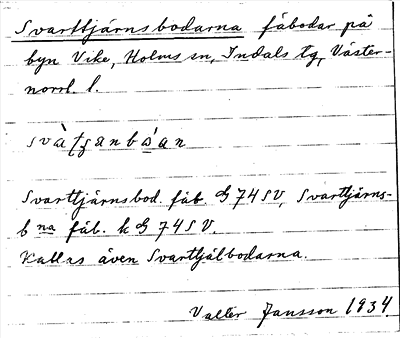 Svarttjärnsbodarna fäbodar på
byn Vike, Holms sn, Indals tg, Väster-
norrl. l.
svàtʃanbάan
Svarttjärnsbod. fäb. G 74 SV, Svarttjärns-
b na fäb. k G 74 S V.
Kallas även Svarttjälbodarna.
Valter Jansson 1934